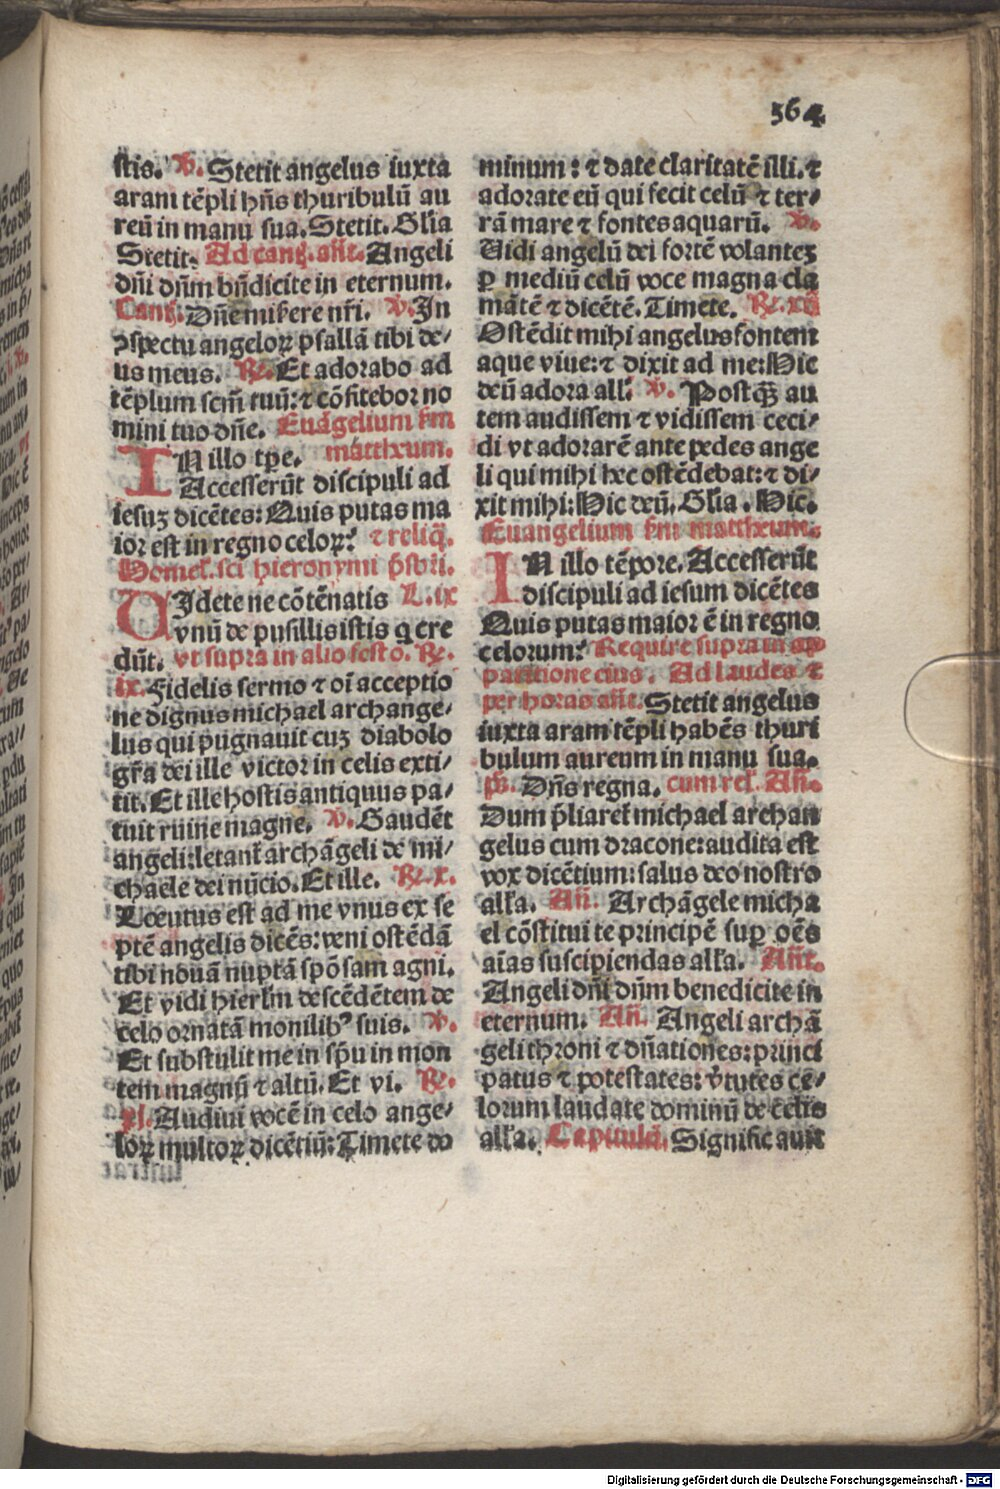 364
stis. V. Stetit angelus iuxta
aram tēpli hñs thuribulū au
reū in manu sua. Stetit. Glīa
Stetit. Ad cantꝫ. añt. Angeli
dñi dñm bñdicite in eternum.
Cantꝫ. Dñe miserere nr̄i. V. In
ↄspectu angelorꝝ psallā tibi de⸗
us meus. R. Et adorabo ad
tēplum scm̄ tuū: ⁊ cōfitebor no
mini tuo dñe. Euāgelium s̄m
mattheum.
IN illo tp̄e.
Accesserūt discipuli ad
iesuꝫ dicētes: Quis putas ma
ior est in regno celorꝝ? ⁊ reliq̄.
Homel. sci hieronymi p̄sbri.
UIdete ne cōtēnatis L. ix
vnū de pusillis istis q̄ cre
dūt. vt supra in alio festo. R.
ix. Fidelis sermo ⁊ oī acceptio
ne dignus michael archange⸗
lus qui pugnauit cuꝫ diabolo
gr̄a dei ille victor in celis exti⸗
tit. Et ille hostis antiquus pa⸗
tuit ruine magne. V. Gaudēt
angeli: letant᷑ archāgeli de mi⸗
chaele dei nūcio. Et ille. R. x.
Locutus est ad me vnus ex se
ptē angelis dicēs: veni ostēdā
tibi nouā nuptā spōsam agni.
Et vidi hierl̄m descēdētem de
celo ornatā monilibꝰ suis. V.
Et substulit me in sp̄u in mon
tem magnū ⁊ altū. Et vi. R.
xj. Audiui vocē in celo ange⸗
lorꝝ multorꝝ dicētiū: Timete do
minum: ⁊ date claritatē illi. ⁊
adorate eū qui fecit celū ⁊ ter⸗
rā mare ⁊ fontes aquarū. V.
Uidi angelū dei fortē volanteꝫ
ꝑ mediū celū voce magna cla
mātē ⁊ dicētē. Timete. R. xij
Ostēdit mihi angelus fontem
aque viue: ⁊ dixit ad me: Hic
deū adora all'. V. Postqꝫ au
tem audissem ⁊ vidissem ceci⸗
di vt adorarē ante pedes ange
li qui mihi hec ostēdebat: ⁊ di⸗
xit mihi: Hic deū. Glīa. Hic.
Euangelium s̄m mattheum.
IN illo tēpore. Accesserūt
discipuli ad iesum dicētes
Quis putas maior ē in regno
celorum? Require supra in ap
paritione eius. Ad laudes ⁊
per horas añt. Stetit angelus
iuxta aram tēpli habēs thuri
bulum aureum in manu sua.
ps. Dñs regna. cum rel'. Añ.
Dum p̄liaret᷑ michael archan
gelus cum dracone: audita est
vox dicētium: salus deo nostro
all'a. Añ. Archāgele micha
el cōstitui te principē suꝑ oēs
aīas suscipiendas all'a. Añt.
Angeli dñi dñm benedicite in
eternum. Añ. Angeli archā
geli throni ⁊ dñationes: princi
patus ⁊ potestates: v̄tutes ce⸗
lorum laudate dominū de celis
all'a. Capitulū. Significauit
Digitalisierung gefördert durch die Deutsche Forschungsgemeinschaft - DFG